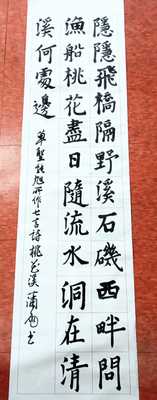 隱隱飛橋隔野溪石磯西畔問
漁船桃花盡日隨流水洞在清
溪何處邊
草聖張旭所作七言詩桃花溪 蒲 书